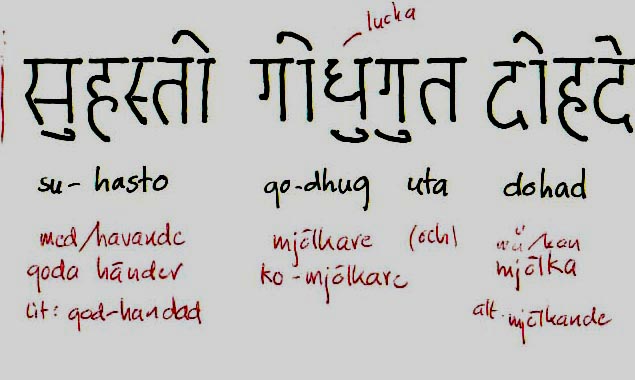 lucka
सुहस्तो गोधुगुत दोहदे
su-hasto go-dhug uta dohad
med/havande mjölkare (och) /kan
goda händer ko-mjölkare mjölka
lit: god-handad alt. mjölkande